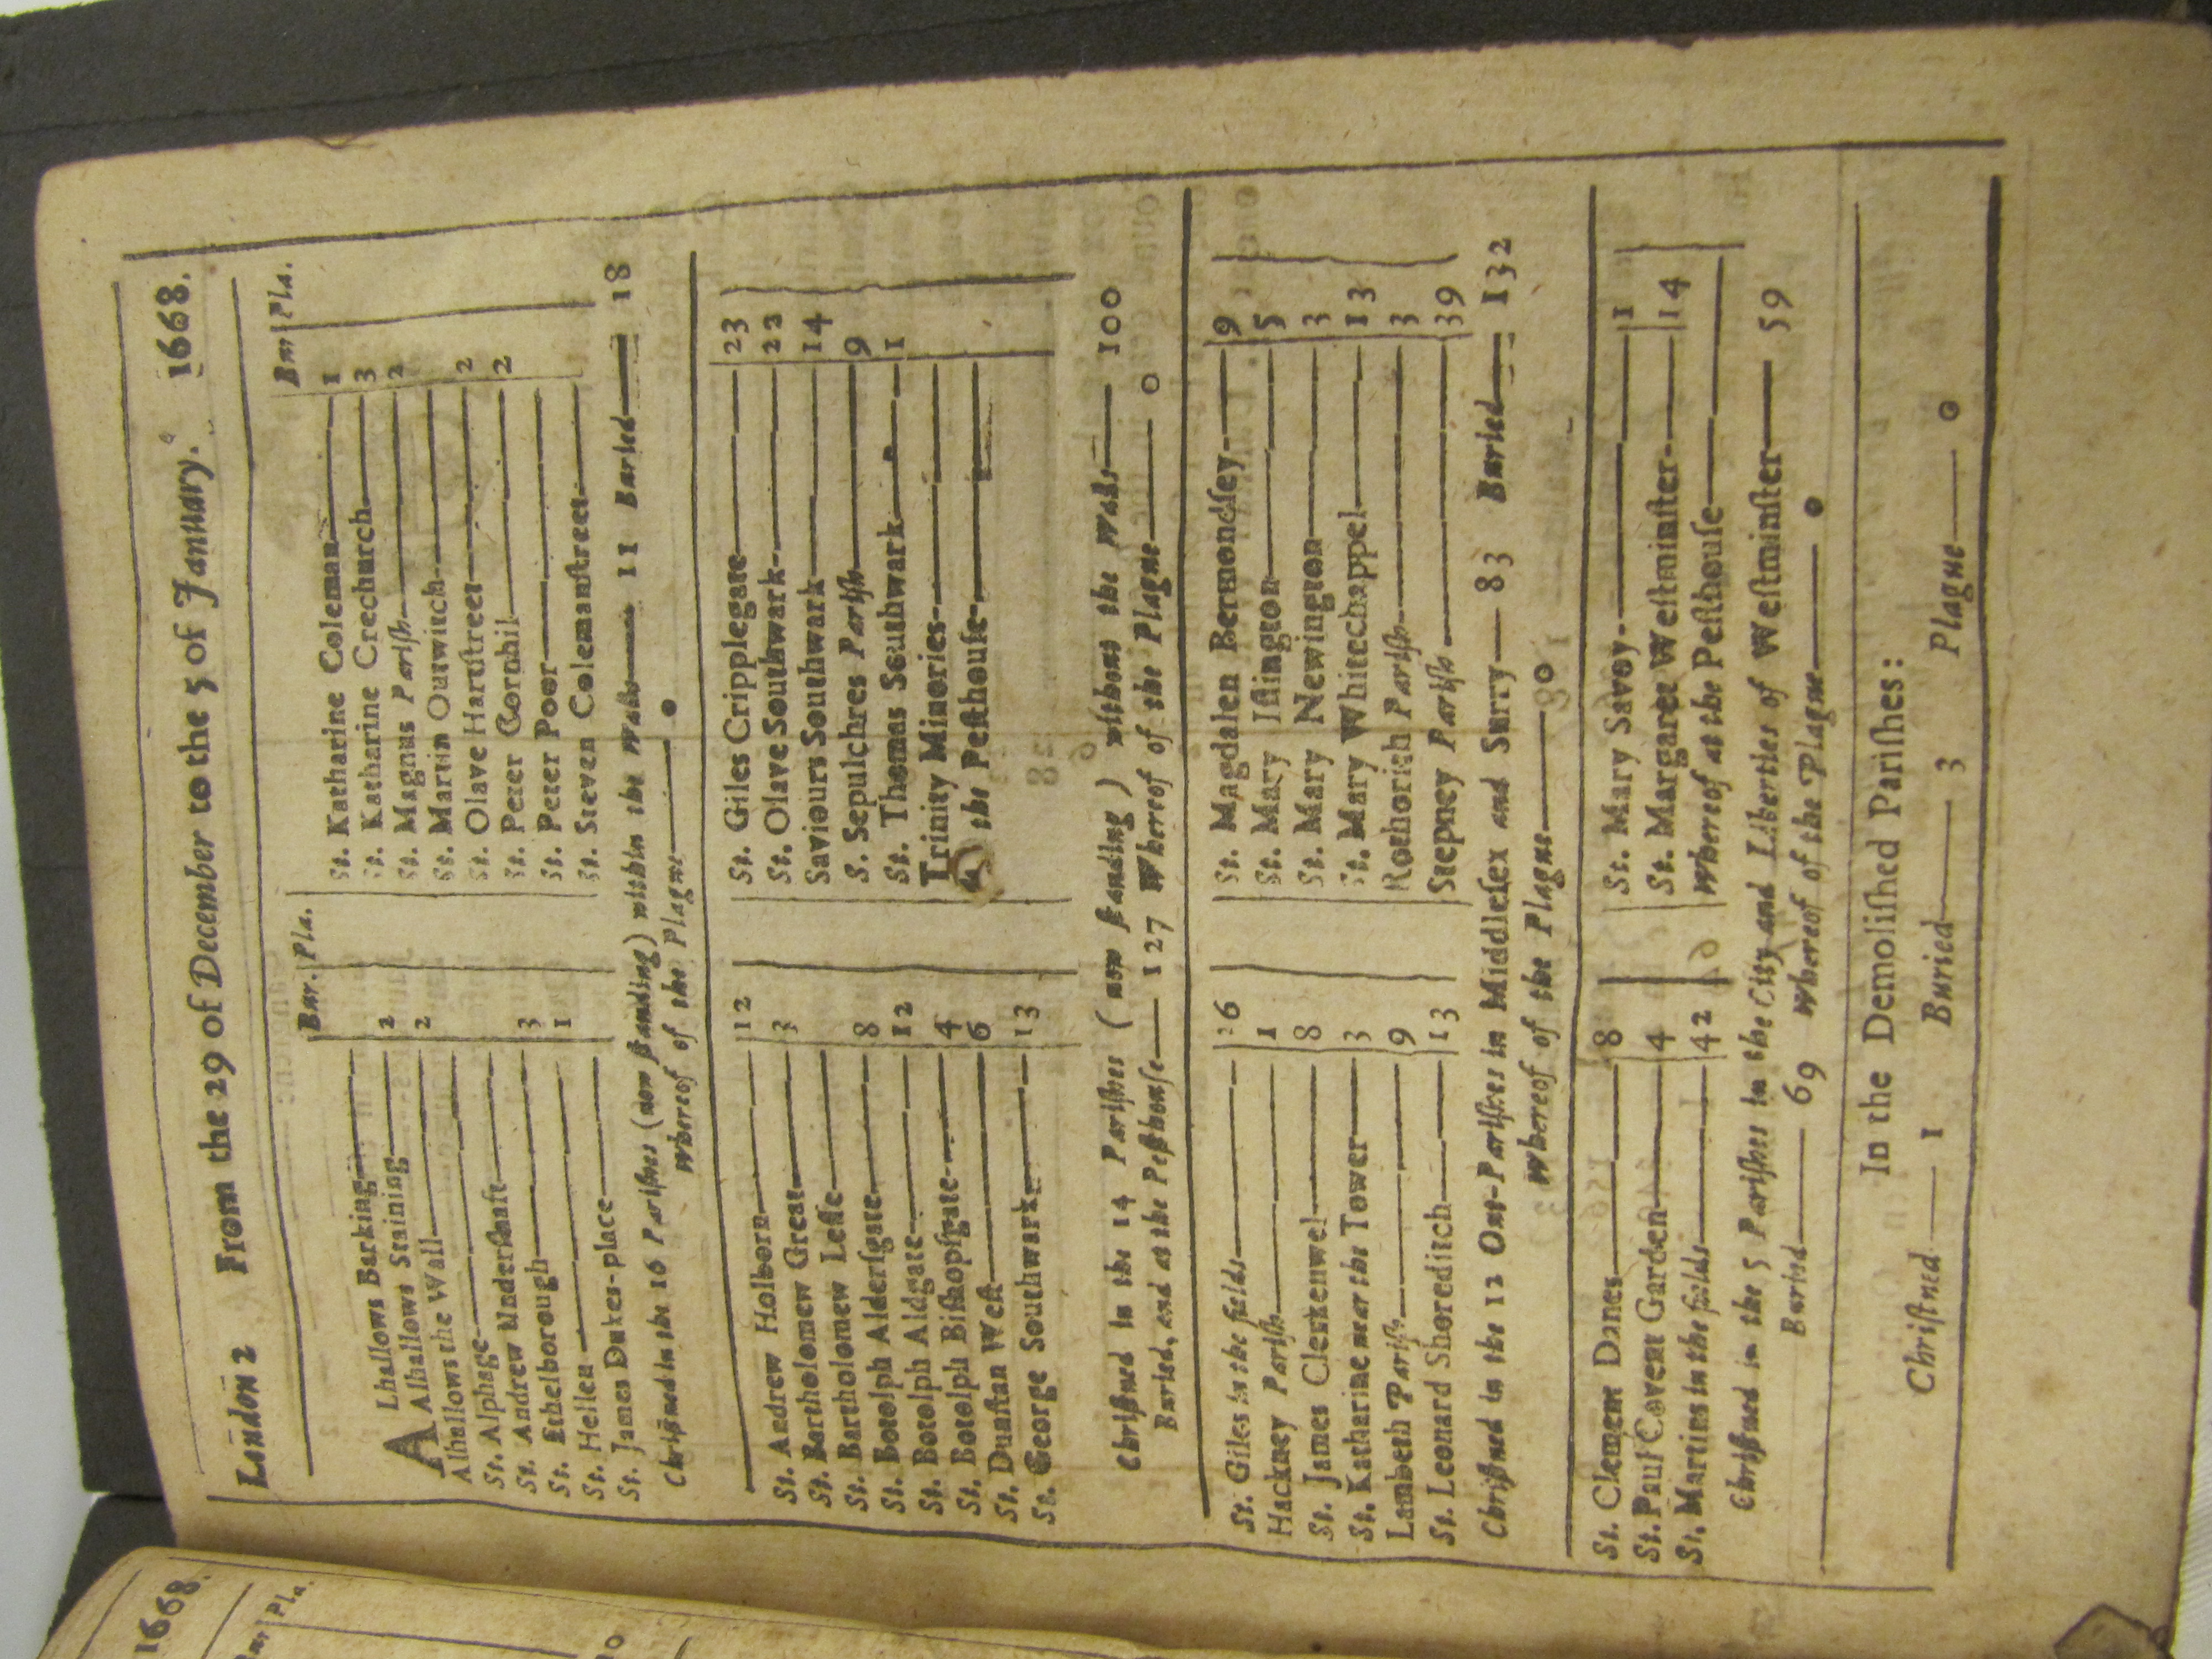 London 2 From the 29 of December to the 5 of January. 1668.
Bur. Pla.
ALhallows Barking
Alhallows Staining 2
Alhallows the Wall 2
St. Alphage
St. Andrew Underſhaft
St. Ethelborough 3
St. Hellen 1
St. James Dukes-place
Bur Pla.
St. Katharine Coleman 1
St. Katharine Crechurch 3
St. Magnus Pariſh 2
St. Martin Outwitch
St. Olave Hartſtreet 2
St. Peter Cornhil 2
St. Peter Poor
St. Steven Colemanſtreet
Chriſtned in the 16 Pariſhes (now ſtanding) within the Walls 11 Buried 18
Whereof of the Plague 0
St. Andrew Holborn 12
St. Bartholomew Great 3
St. Bartholomew Leſſe
St. Botolph Alderſgate 8
St. Botolph Aldgate 12
St. Botolph Biſhopſgate 4
St. Dunſtan Weſt 6
St. George Southwark 13
St. Giles Cripplegate 23
St. Olave Southwark 22
Saviours Southwark 14
S. Sepulchres Pariſh 9
St. Thomas Southwark 1
Trinity Minories
At the Peſthouſe
Chriſtned in the 14 Pariſhes (now ſtanding) without the Walls 100
Buried, and at the Peſthouſe 127 Whereof of the Plague 0
St. Giles in the fields 26
Hackney Pariſh 1
St. James Clerkenwel 8
St. Katharine near the Tower 3
Lambeth Pariſh 9
St. Leonard Shoreditch 13
St. Magdalen Bermondſey 9
St. Mary Iſlington 5
St. Mary Newington 3
St. Mary Whitechappel 13
Rothorith Pariſh 3
Stepney Pariſh 39
Chriſtned in the 12 Out-Pariſhes in Middleſex and Surry 83 Buried 132
Whereof of the Plague 0
St. Clement Danes 8
St. Paul Covent Garden 4
St. Martins in the fields 42
St. Mary Savoy 1
St. Margaret Weſtminſter 14
Whereof at the Peſthouſe
Chriſtned in the 5 Pariſhes in the City and Liberties of Weſtminſter 59
Buried 69 Whereof of the Plague 0
In the Demoliſhed Pariſhes:
Chriſtned 1 Buried 3 Plague 0
1668.
Pla.
0